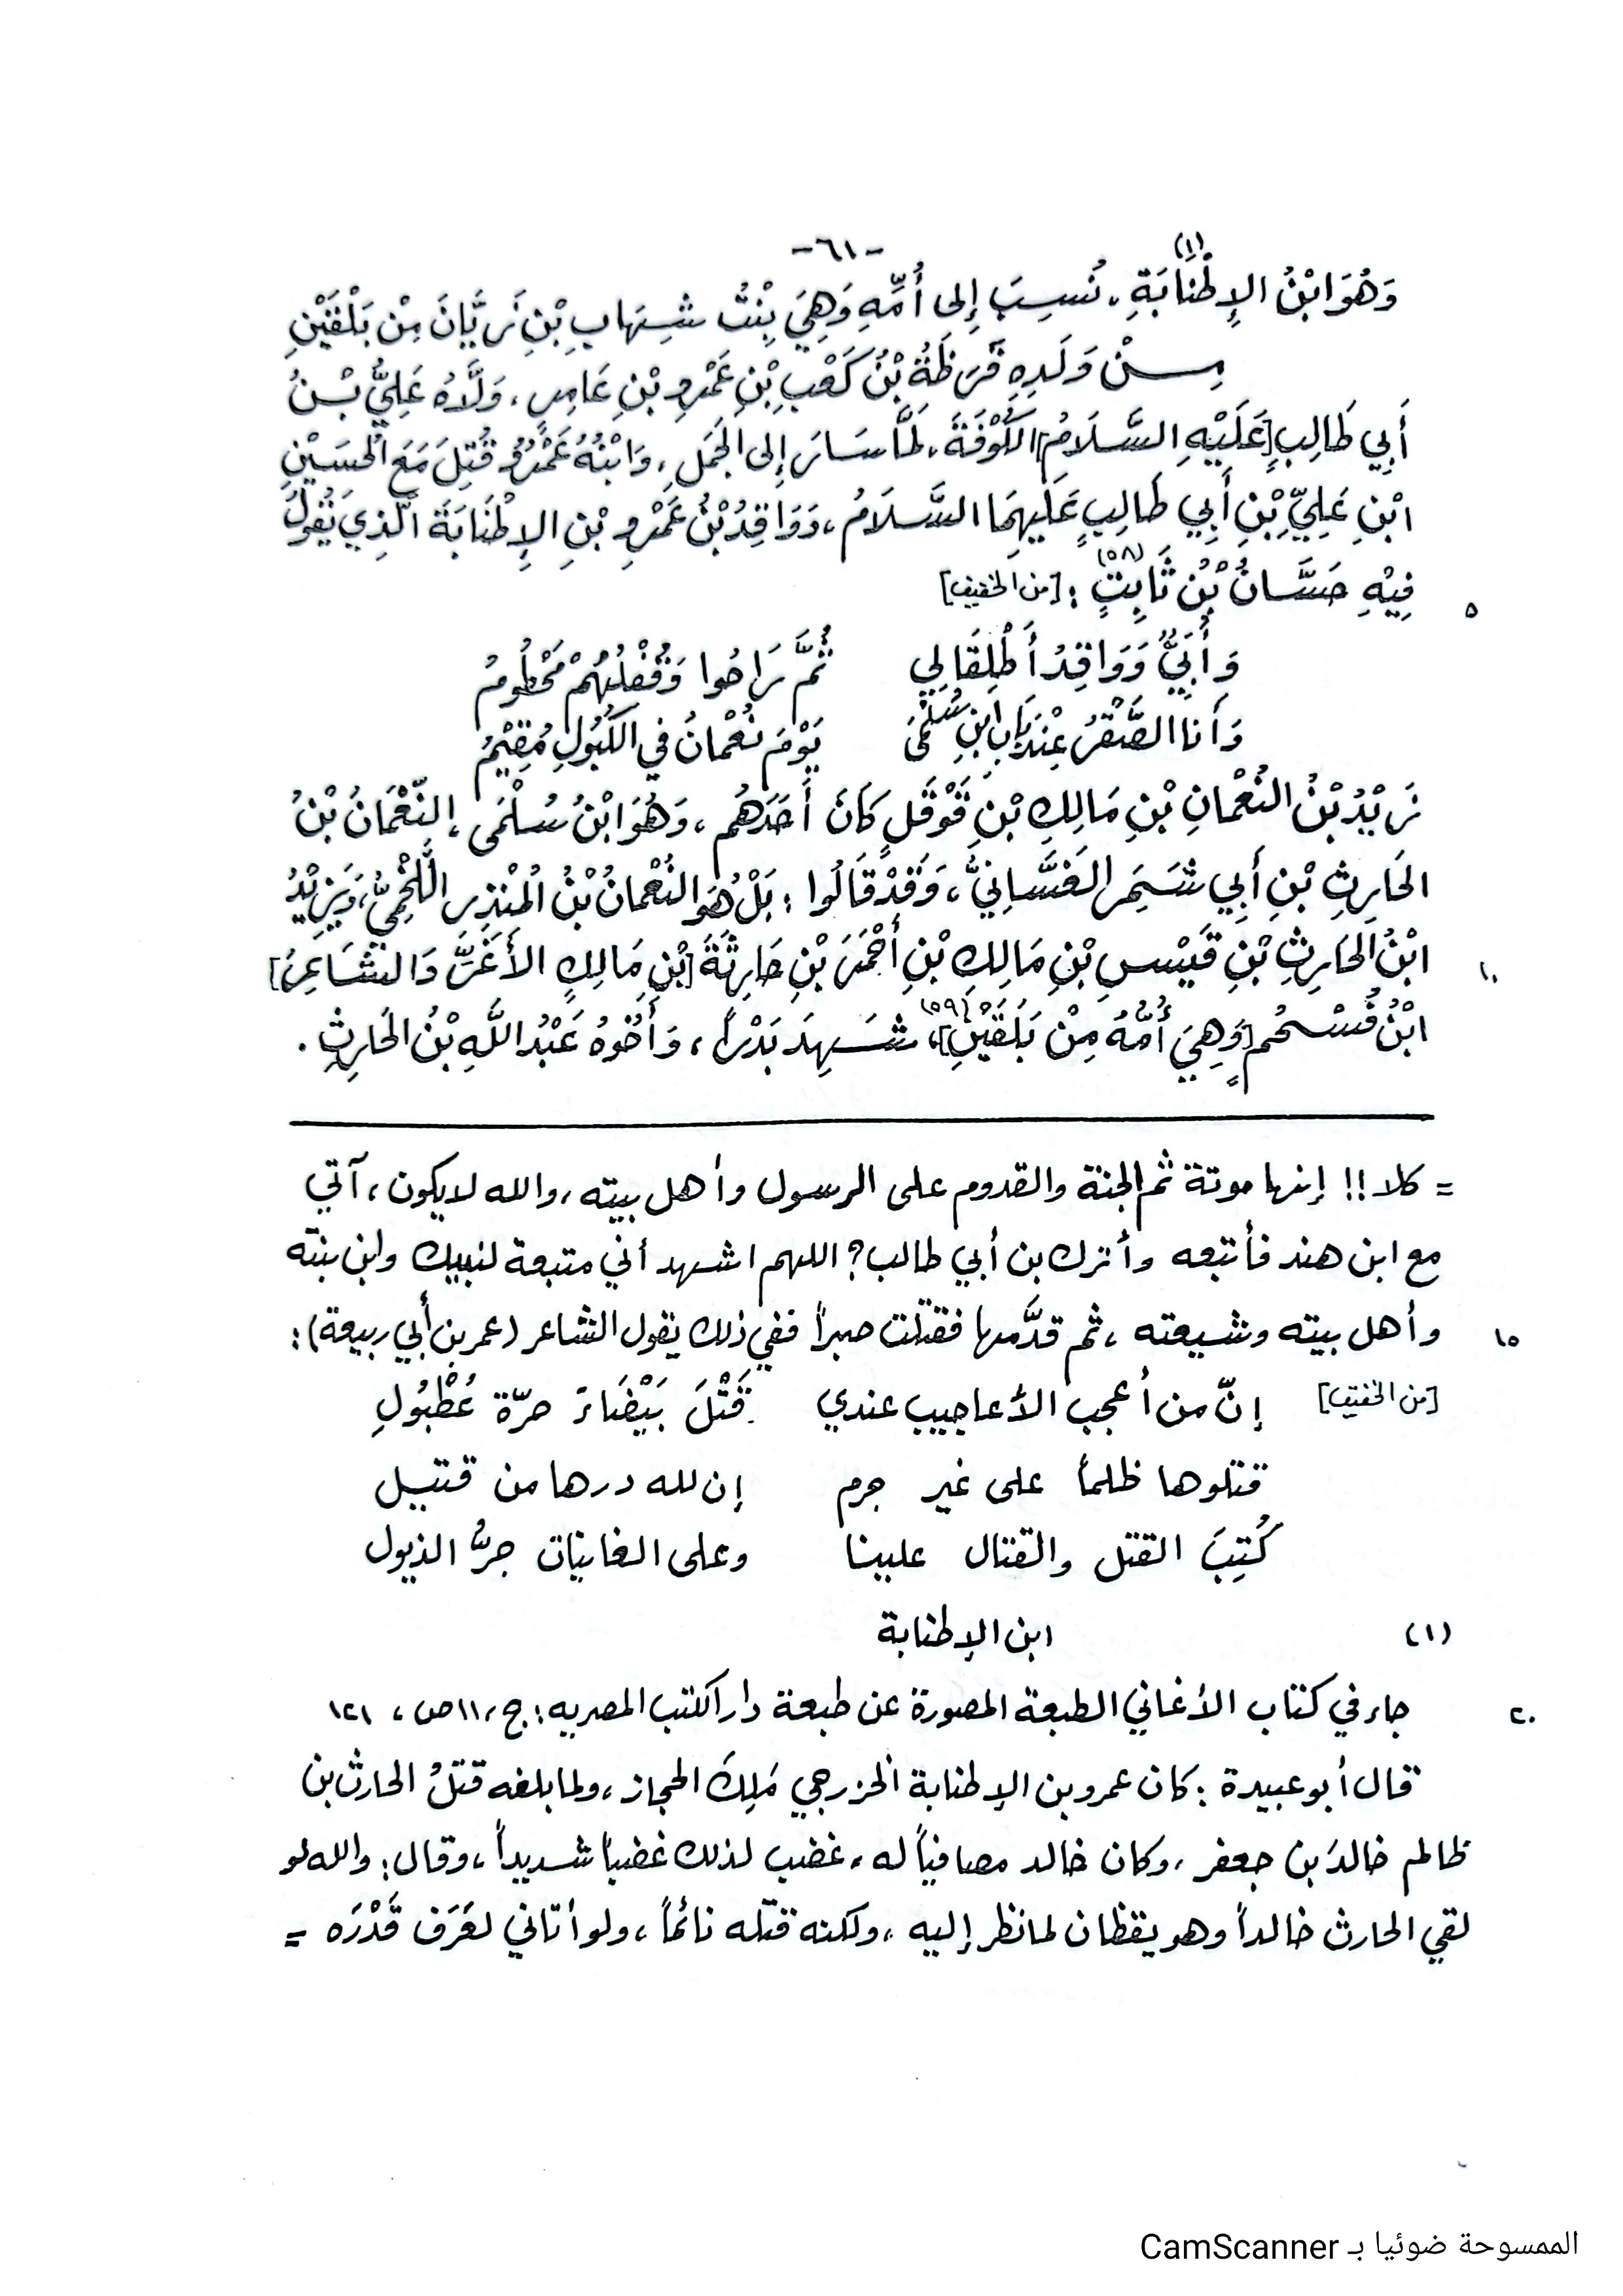 -٦١-
وَهُوَ ابْنُ الإِطْنَابَةِ(١)، نُسِبَ إِلى أُمِّهِ وَهِيَ بِنْتُ شِهَابِ بْنِ زَبَّانَ مِنْ بَلْقَيْنِ
مِنْ وَلَدِهِ قَرَظَةُ بْنُ كَعْبِ بْنِ عَمْرِو بْنِ عَامِرٍ، وَلَّاهُ عَلِيُّ بْنُ
أَبِي طَالِبٍ [عَلَيْهِ السَّلَامُ] الكُوْفَةَ، لَمَّا سَارَ إِلى الجَمَلِ، وَابْنُهُ عَمْرُو قُتِلَ مَعَ الحُسَيْنِ
ابْنِ عَلِيِّ بْنِ أَبِي طَالِبٍ عَلَيْهِمَا السَّلَامُ، وَوَاقِدُ بْنُ عَمْرِو بْنِ الإِطْنَابَةَ الَّذِي يَقُولُ
٥ فِيْهِ حَسَّانُ بْنُ ثَابِتٍ (٥٨) : [من الخفيف]
وَأُبَيٌّ وَوَاقِدُ أُطْلِقَا لِي ثُمَّ رَاحُوا وَقُفْلُهُمْ مَحْطُومُ
وَأَنا الصَّقْرُ عِنْدَ بَابِ ابْنِ سَلْمَى يَوْمَ نُعْمانُ في الكُبُولِ مُقِيْمُ
زَيْدُ بْنُ النُعْمانِ بْنِ مَالِكِ بْنِ قَوْقَلٍ كَانَ أَحَدَهُم، وَهُوَ ابْنُ سُلْمَى، النّعْمَانُ بْنُ
الحَارِثِ بْنِ أَبِي شَمِر الغَسَّانِيُّ، وَقَدْ قَالُوا : بَلْ هُوَ النُعْمَانُ بْنُ الُمنْذِرِ اللَّخْمِيُّ، وَيَزِيْدُ
١٠ ابْنُ الحَارِثِ بْنِ قَيْسِ بْنِ مَالِكِ بْنِ أَحْمَرَ بْنِ حَارِثَةَ [بْنِ مَالِكٍ الأَغَرِّ وَالشَاعِرُ]
ابْنُ فُسْحُمٍ [وَهِيَ أُمُّهُ مِنْ بَلَقَيْنِ] (٥٩)، شَهِدَ بَدْراً، وَأَخُوهُ عَبْدُ اللَّهِ بْنُ الحَارِثِ .
= كلا!! إنها موتة ثم الجنة والقدوم على الرسول وأهل بيته، والله لا يكون، آتي
مع ابن هند فأتبعه وأترك بن أبي طالب؟ اللهم اشهد أني متبعة لنبيك وابن بنته
١٥ وأهل بيته وشيعته، ثم قدَّمها فقتلت صبراً ففي ذلك يقول الشاعر (عمر بن أبي ربيعة):
[من الخفيف] إنّ من أعجب الأعاجيب عندي قَتْلَ بَيْضَاءَ حرّة عُطْبُولِ
قتلوها ظلماً على غير جرم إن لله درها من قتيل
كُتِبَ القتل والقتال علينا وعلى الغانيات جرُّ الذيول
(١) ابن الإطنابة
٢٠ جاء في كتاب الأغاني الطبعة المصورة عن طبعة دار الكتب المصريه: ج، ١١ ص، ١٢١
قال أبو عبيدة : كان عمرو بن الإطنابة الخزرجي مَلِكَ الحجاز، ولما بلغه قتلُ الحارث بن
ظالم خالدَ بن جعفر، وكان خالد مصافياً له، غضب لذلك غضباً شديداً، وقال: والله لو
لقي الحارث خالداً وهو يقظان لما نظر إليه، ولكنه قتله نائماً، ولو أتاني لعَرَف قَدْرَه =
الممسوحة ضوئيا بـ CamScanner